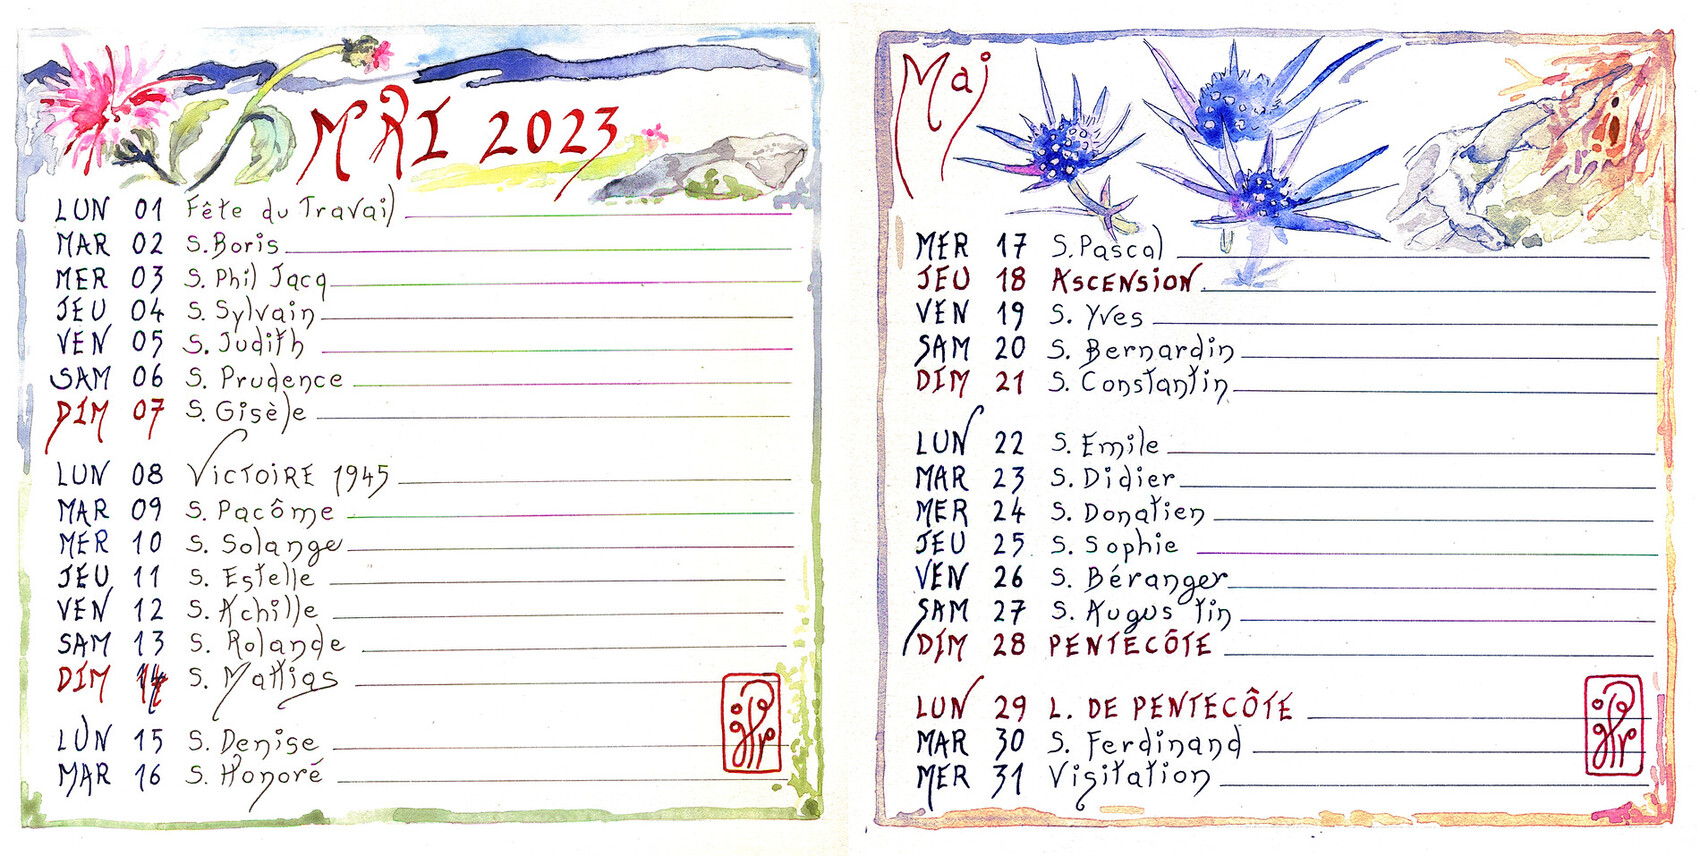 MAI 2023
LUN 01 Fête du Travail
MAR 02 S. Boris
MER 03 S. Phil Jacq
JEU 04 S. Sylvain
VEN 05 S. Judith
SAM 06 S. Prudence
DIM 07 S. Gisèle
LUN 08 VICTOIRE 1945
MAR 09 S. Pacôme
MER 10 S. Solange
JEU 11 S. Estelle
VEN 12 S. Achille
SAM 13 S. Rolande
DIM 14 S. Mattias
LUN 15 S. Denise
MAR 16 S. Honoré
Mai
MER 17 S. Pascal
JEU 18 ASCENSION
VEN 19 S. Yves
SAM 20 S. Bernardin
DIM 21 S. Constantin
LUN 22 S. Emile
MAR 23 S. Didier
MER 24 S. Donatien
JEU 25 S. Sophie
VEN 26 S. Béranger
SAM 27 S. Augustin
DIM 28 PENTECÔTE
LUN 29 L. DE PENTECÔTE
MAR 30 S. Ferdinand
MER 31 Visitation